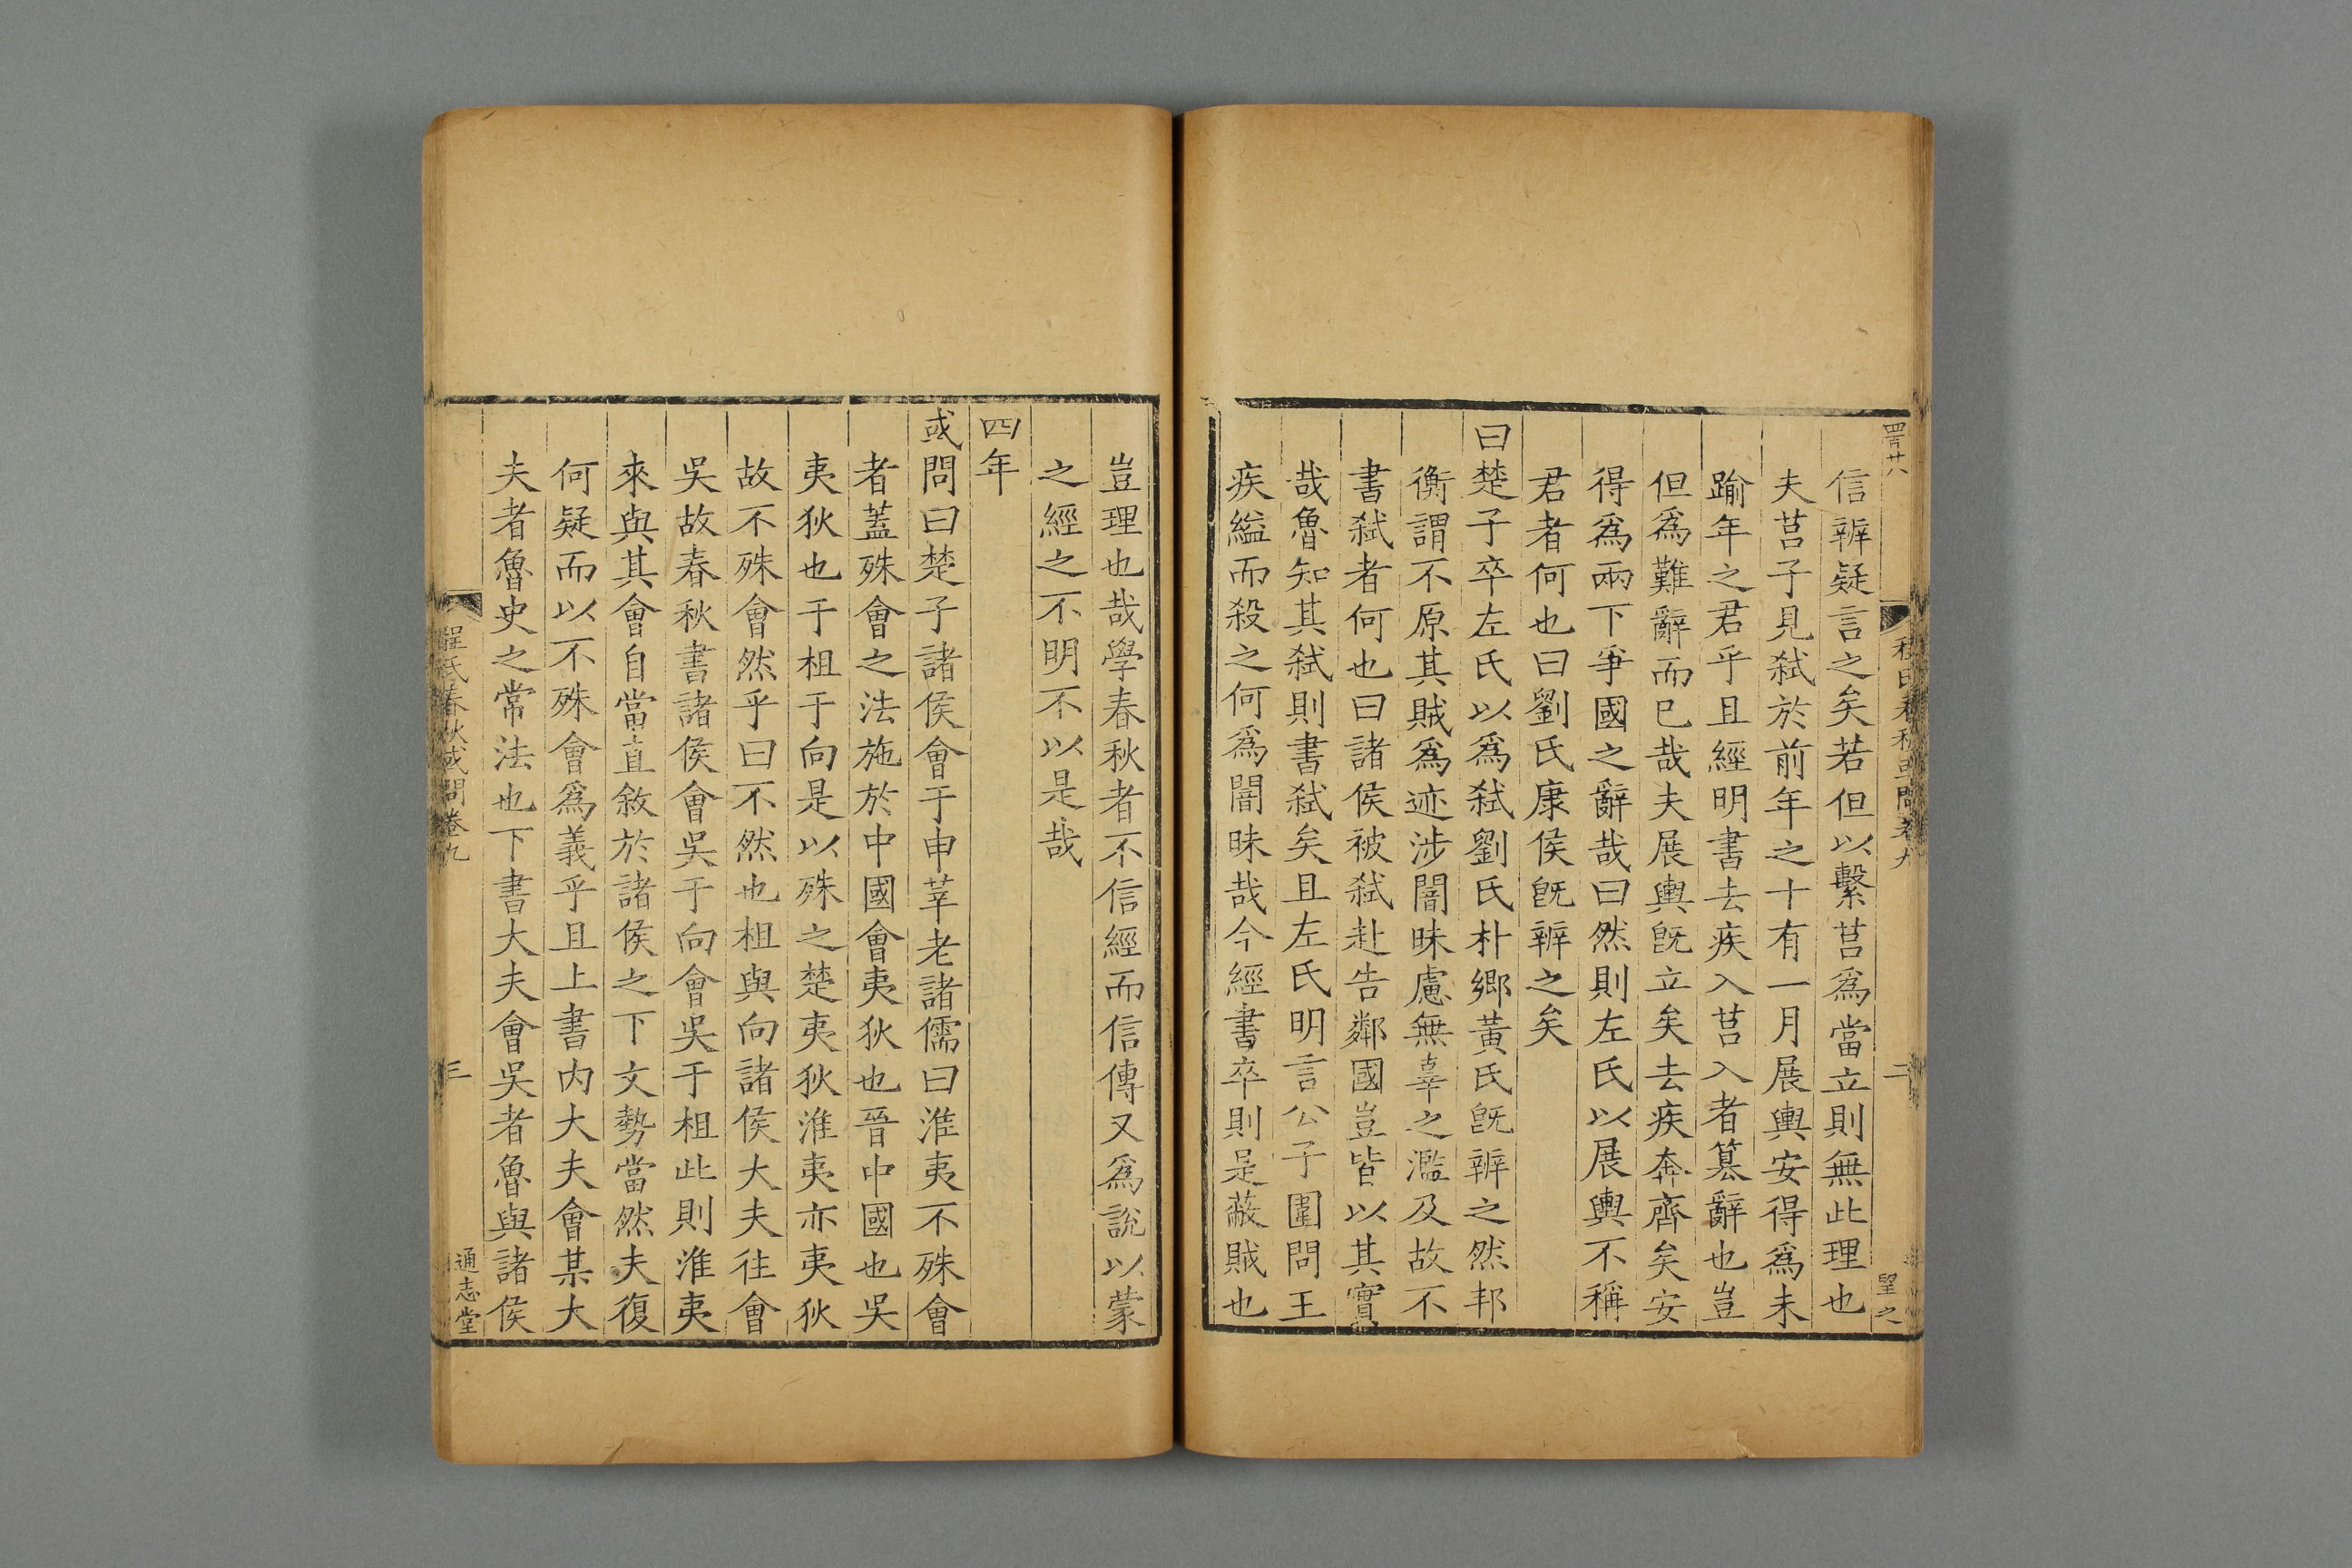 信辨疑言之矣若但以繫莒爲當立則無此理也
夫莒子見弑於前年之十有一月展輿安得爲未
踰年之君乎且經明書去疾入莒入者篡辭也豈
但爲難辭而已哉夫展輿旣立矣去疾奔齊矣安
得爲兩下爭國之辭哉曰然則左氏以展輿不稱
君者何也曰劉氏康侯旣辨之矣
曰楚子卒左氏以爲弑劉氏朴鄉黃氏旣辨之然邦
衡謂不原其賊爲迹涉闇昧慮無辜之濫及故不
書弑者何也曰諸侯被弑赴告鄰國豈皆以其實
哉魯知其弑則書弑矣且左氏明言公子圍問王
疾縊而殺之何爲闇昧哉今經書卒則是蔽賊也
豈理也哉學春秋者不信經而信傳又爲說以蒙
之經之不明不以是哉
四年
或問曰楚子諸侯會于申莘老諸儒曰淮夷不殊會
者蓋殊會之法施於中國會夷狄也晉中國也吳
夷狄也于柤于向是以殊之楚夷狄淮夷亦夷狄
故不殊會然乎曰不然也柤與向諸侯大夫往會
吳故春秋書諸侯會吳于向會吳于柤此則淮夷
來與其會自當直敘於諸侯之下文勢當然夫復
何疑而以不殊會爲義乎且上書內大夫會某大
夫者魯史之常法也下書大夫會吳者魯與諸侯
程氏春秋或問卷九
三
通志堂